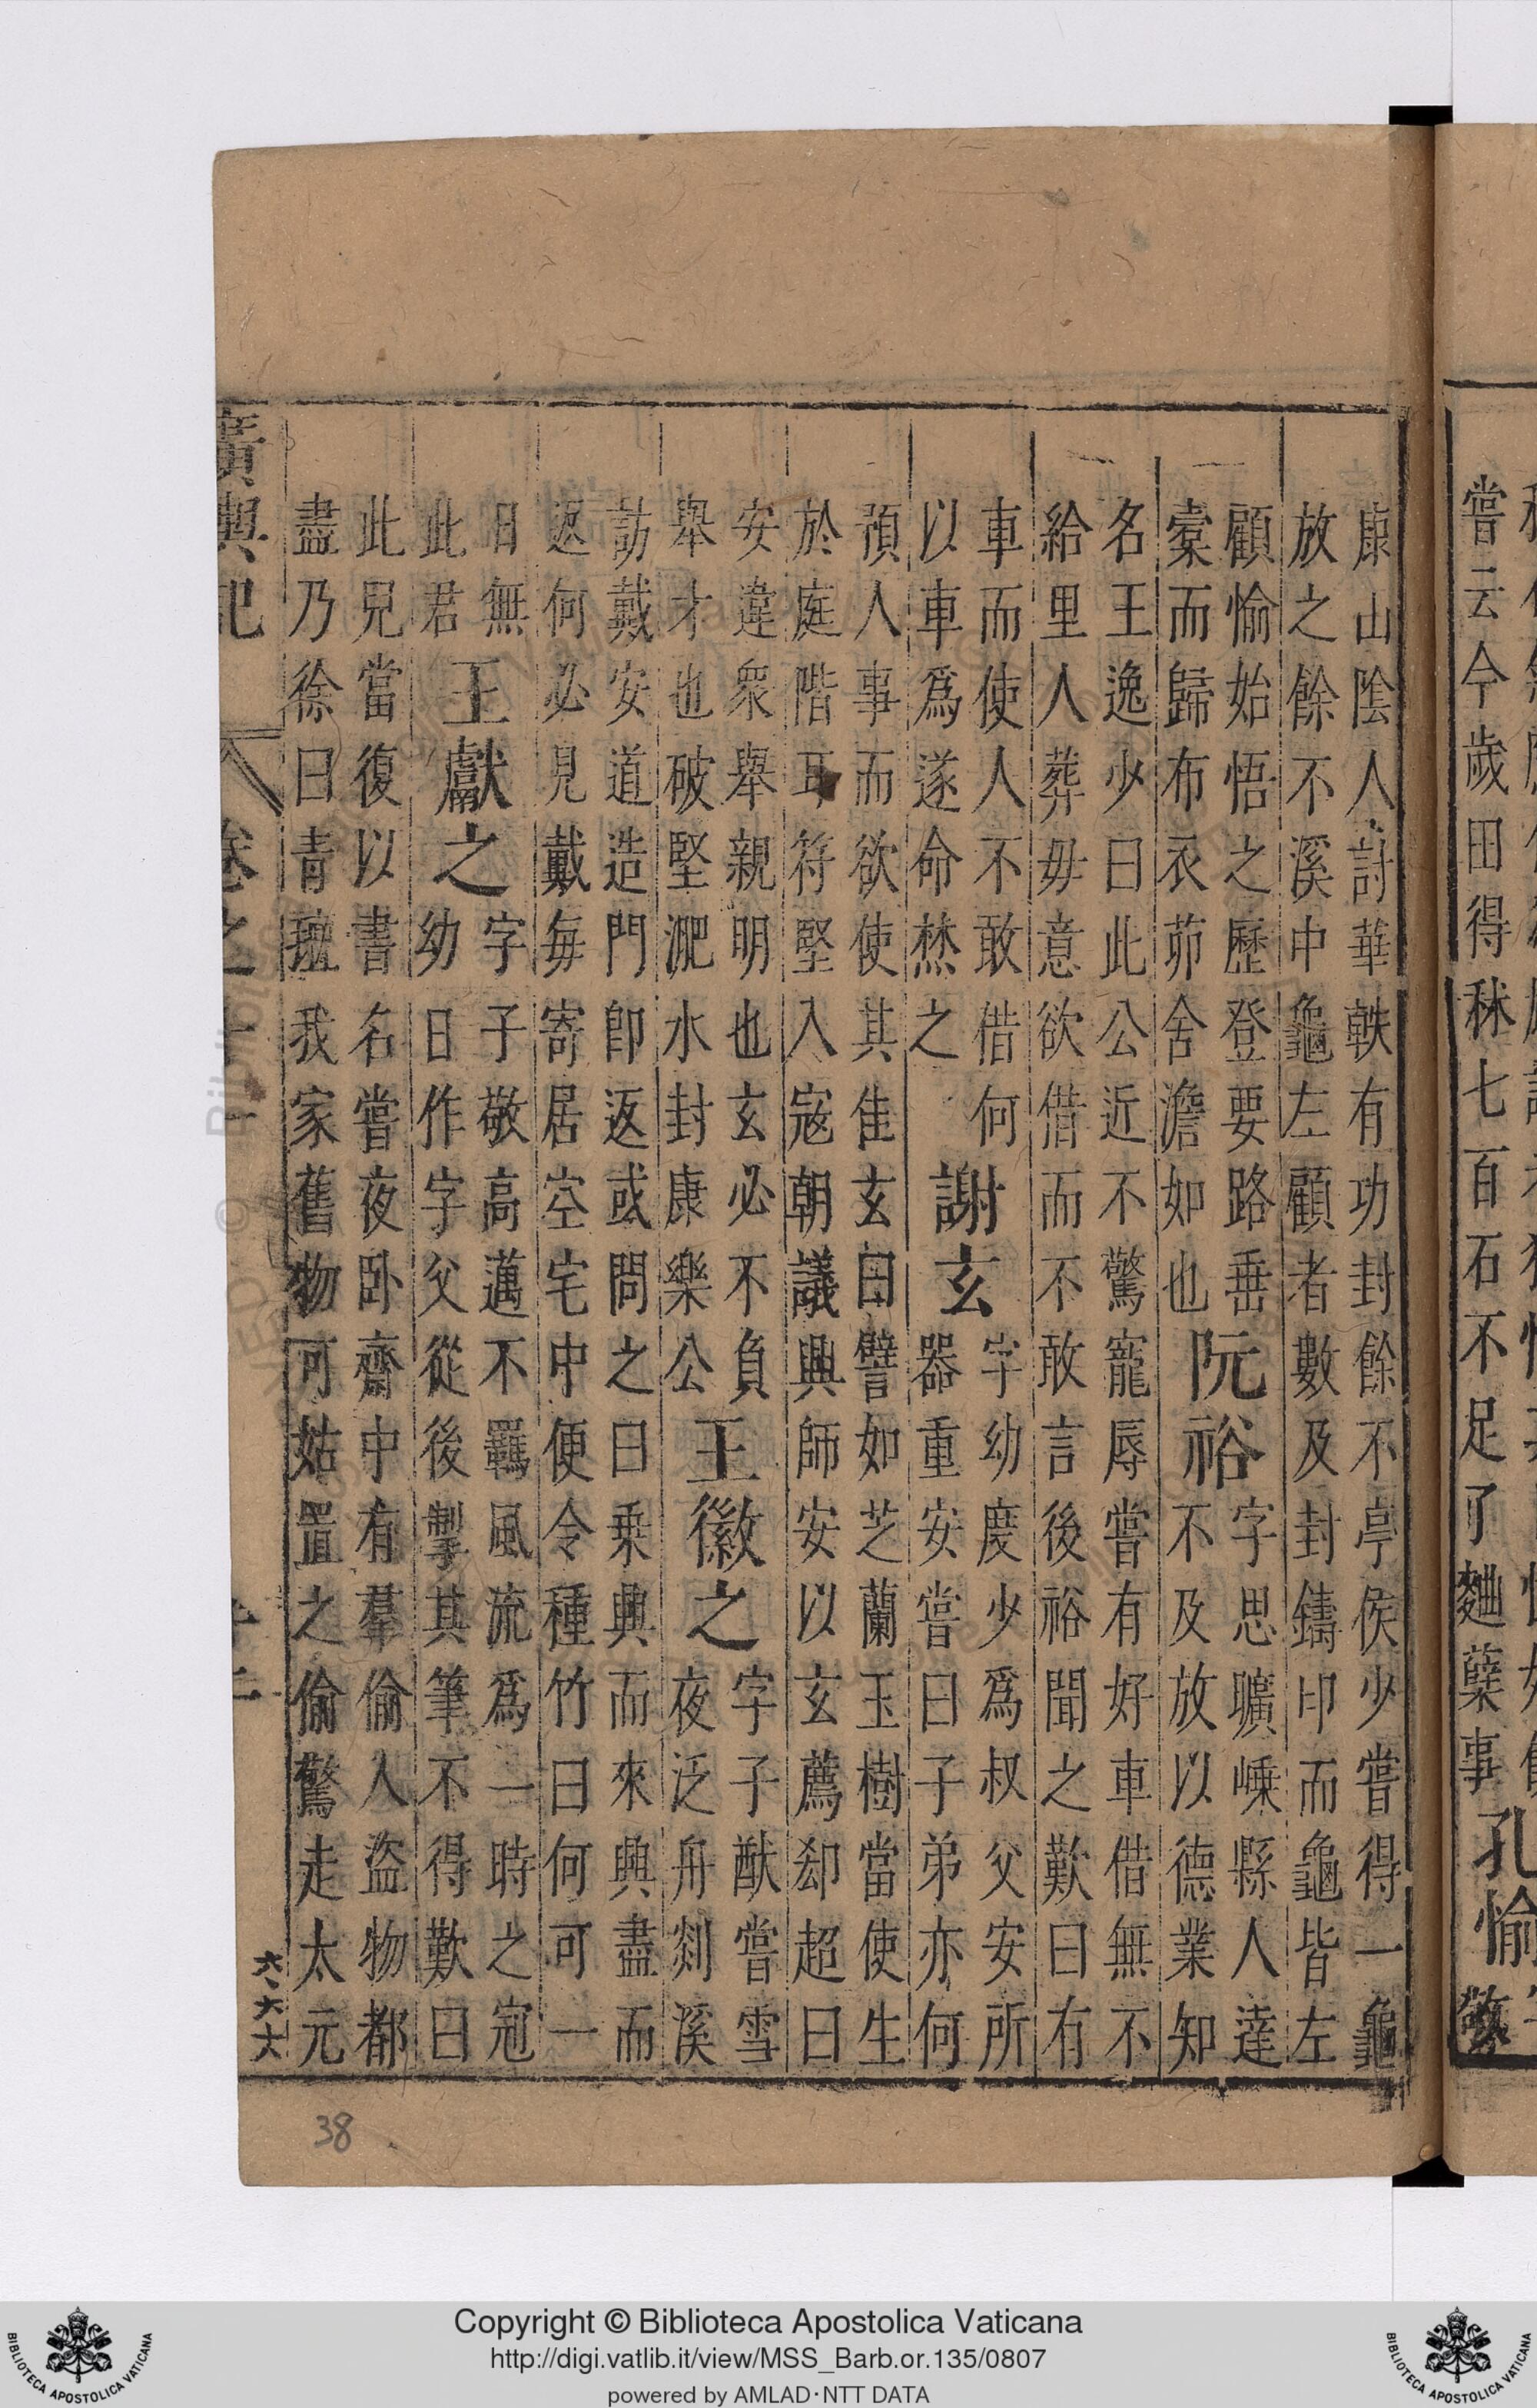 嘗云今歲田得秫七百石不足了麯蘖事
孔愉
敬
康山陰人討華軼有功封餘不亭侯少嘗得一龜
放之餘不溪中龜左顧者數及封鑄印而龜皆左
顧愉始悟之歷登要路垂
棄而歸布衣茆舍澹如也
阮裕
字思曠嵊縣人達
不及放以德業知
名王逸少曰此公近不驚寵辱嘗有好車借無不
給里人葬毋意欲借而不敢言後裕聞之歎曰有
車而使人不敢借何
以車爲遂命焚之
謝玄
字幼度少爲叔父安所
器重安嘗曰子弟亦何
預人事而欲使其佳玄曰譬如芝蘭玉樹當使生
於庭階耳符堅入寇朝議興師安以玄薦郄超曰
安違衆舉親明也玄必不負
舉才也破堅淝水封康樂公
王徽之
字子猷嘗雪
夜泛舟剡溪
訪戴安道造門卽返或問之曰乗興而來興盡而
返何必見戴毎寄居空宅中便令種竹曰何可一
日無
此君
王獻之
字子敬高邁不羈風流爲一時之冠
幼日作字父從後掣其筆不得歎曰
此兒當復以書名嘗夜卧齋中有羣偷人盜物都
盡乃徐曰青氊我家舊物可姑置之偷驚走太元
廣輿記
卷之十一
六六六
38
Copyright © Biblioteca Apostolica Vaticana
http://digi.vatlib.it/view/MSS_Barb.or.135/0807
powered by AMLAD·NTT DATA
BIBLIOTECA APOSTOLICA VATICANA
BIBLIOTECA APOSTOLICA VATICANA